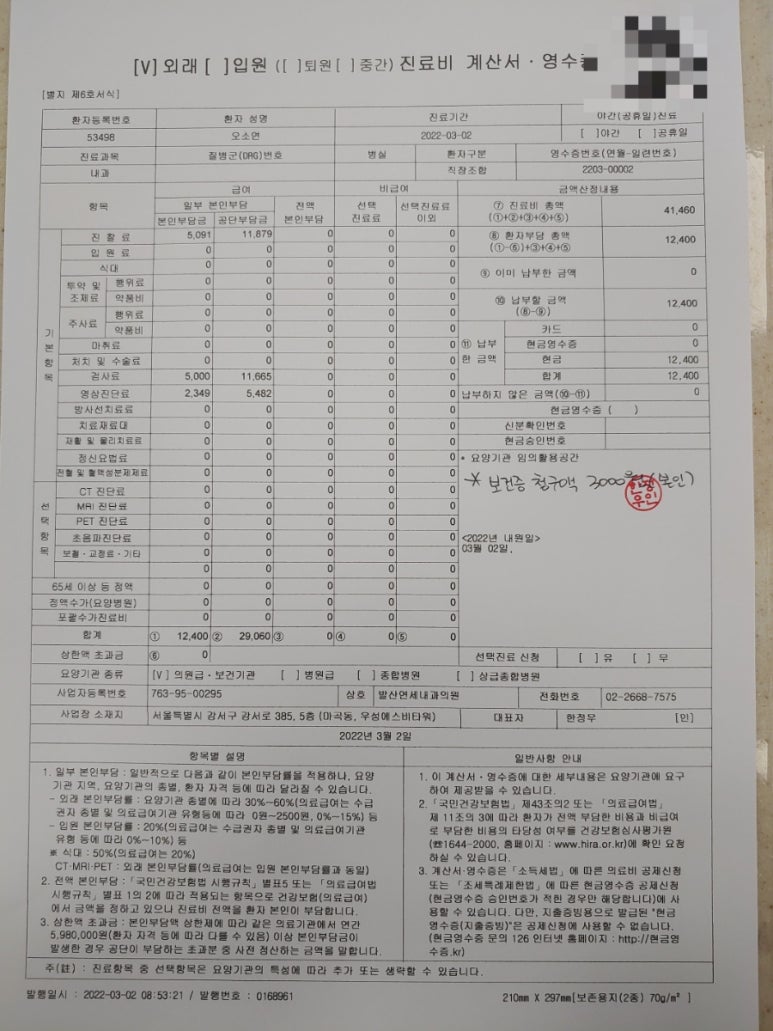 [V]외래 [ ]입원 ([ ]퇴원[ ]중간) 진료비 계산서 · 영수
[별지 제6호서식]
환자등록번호 환자 성명 진료기간 야간(공휴일)진료
53498 오소연 2022-03-02 [ ]야간 [ ]공휴일
진료과목 질병군(DRG)번호 병실 환자구분 영수증번호(연월-일련번호)
내과 직장조합 2203-00002
항목 급여 비급여 금액산정내용
일부 본인부담 전액 본인부담 선택 진료료 선택진료료 이외
본인부담금 공단부담금
⑦ 진료비 총액 (①+②+③+④+⑤) 41,460
⑧ 환자부담 총액 (①-⑥)+③+④+⑤ 12,400
⑨ 이미 납부한 금액 0
⑩ 납부할 금액 (⑧-⑨) 12,400
⑪ 납부한 금액 카드 0
현금영수증 0
현금 12,400
합계 12,400
납부하지 않은 금액(⑩-⑪) 0
현금영수증 ( )
신분확인번호
현금승인번호
* 요양기관 임의활용공간
* 보건증 청구액 3000원 (본인)
<2022년 내원일>
03월 02일.
기본항목
진찰료 5,091 11,879 0 0 0
입원료 0 0 0 0 0
식대 0 0 0 0 0
투약 및 조제료 행위료 0 0 0 0 0
약품비 0 0 0 0 0
주사료 행위료 0 0 0 0 0
약품비 0 0 0 0 0
마취료 0 0 0 0 0
처치 및 수술료 0 0 0 0 0
검사료 5,000 11,665 0 0 0
영상진단료 2,349 5,482 0 0 0
방사선치료료 0 0 0 0 0
치료재료대 0 0 0 0 0
재활 및 물리치료료 0 0 0 0 0
정신요법료 0 0 0 0 0
전혈 및 혈액성분제제료 0 0 0 0 0
선택항목
CT 진단료 0 0 0 0 0
MRI 진단료 0 0 0 0 0
PET 진단료 0 0 0 0 0
초음파진단료 0 0 0 0 0
보철·교정료·기타 0 0 0 0 0
0 0 0 0 0
65세 이상 등 정액 0 0 0 0 0
정액수가(요양병원) 0 0 0 0 0
포괄수가진료비 0 0 0 0 0
합계 ① 12,400 ② 29,060 ③ 0 ④ 0 ⑤ 0
상한액 초과금 ⑥ 0 선택진료 신청 [ ] 유 [ ] 무
요양기관 종류 [V] 의원급·보건기관 [ ] 병원급 [ ] 종합병원 [ ] 상급종합병원
사업자등록번호 763-95-00295 상호 발산연세내과의원 전화번호 02-2668-7575
사업장 소재지 서울특별시 강서구 강서로 385, 5층 (마곡동, 우성에스비타워) 대표자 한정우 [인]
2022년 3월 2일
항목별 설명
1. 일부 본인부담 : 일반적으로 다음과 같이 본인부담률을 적용하나, 요양
기관 지역, 요양기관의 종별, 환자 자격 등에 따라 달라질 수 있습니다.
- 외래 본인부담률 : 요양기관 종별에 따라 30%~60%(의료급여는 수급
권자 종별 및 의료급여기관 유형등에 따라 0원~2500원, 0%~15%) 등
- 입원 본인부담률 : 20%(의료급여는 수급권자 종별 및 의료급여기관
유형 등에 따라 0%~10%) 등
※ 식대 : 50%(의료급여는 20%)
CT·MRI·PET : 외래 본인부담률(의료급여는 입원 본인부담률과 동일)
2. 전액 본인부담 : 「국민건강보험법 시행규칙」별표5 또는 「의료급여법
시행규칙」별표 1의 2에 따라 적용되는 항목으로 건강보험(의료급여)
에서 금액을 정하고 있으나 진료비 전액을 환자 본인이 부담합니다.
3. 상한액 초과금 : 본인부담액 상한제에 따라 같은 의료기관에서 연간
5,980,000원(환자 자격 등에 따라 다를 수 있음) 이상 본인부담금이
발생한 경우 공단이 부담하는 초과분 중 사전 정산하는 금액을 말합니다.
일반사항 안내
1. 이 계산서·영수증에 대한 세부내용은 요양기관에 요구
하여 제공받을 수 있습니다.
2.「국민건강보험법」제43조의2 또는 「의료급여법」
제 11조의 3에 따라 환자가 전액 부담한 비용과 비급여
로 부담한 비용의 타당성 여부를 건강보험심사평가원
(☎1644-2000, 홈페이지 : www.hira.or.kr)에 확인 요청
하실 수 있습니다.
3. 계산서·영수증은 「소득세법」에 따른 의료비 공제신청
또는 「조세특례제한법」에 따른 현금영수증 공제신청
(현금영수증 승인번호가 적힌 경우만 해당합니다)에 사
용할 수 있습니다. 다만, 지출증빙용으로 발급된 "현금
영수증(지출증빙)"은 공제신청에 사용할 수 없습니다.
(현금영수증 문의 126 인터넷 홈페이지 : http://현금영
수증.kr)
주(註) : 진료항목 중 선택항목은 요양기관의 특성에 따라 추가 또는 생략할 수 있습니다.
발행일시 : 2022-03-02 08:53:21 / 발행번호 : 0168961
210mm X 297mm[보존용지(2종) 70g/m² ]